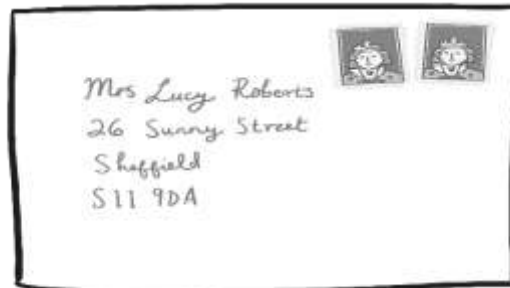 Mrs Lucy Roberts
26 Sunny Street
Sheffield
S11 9DA